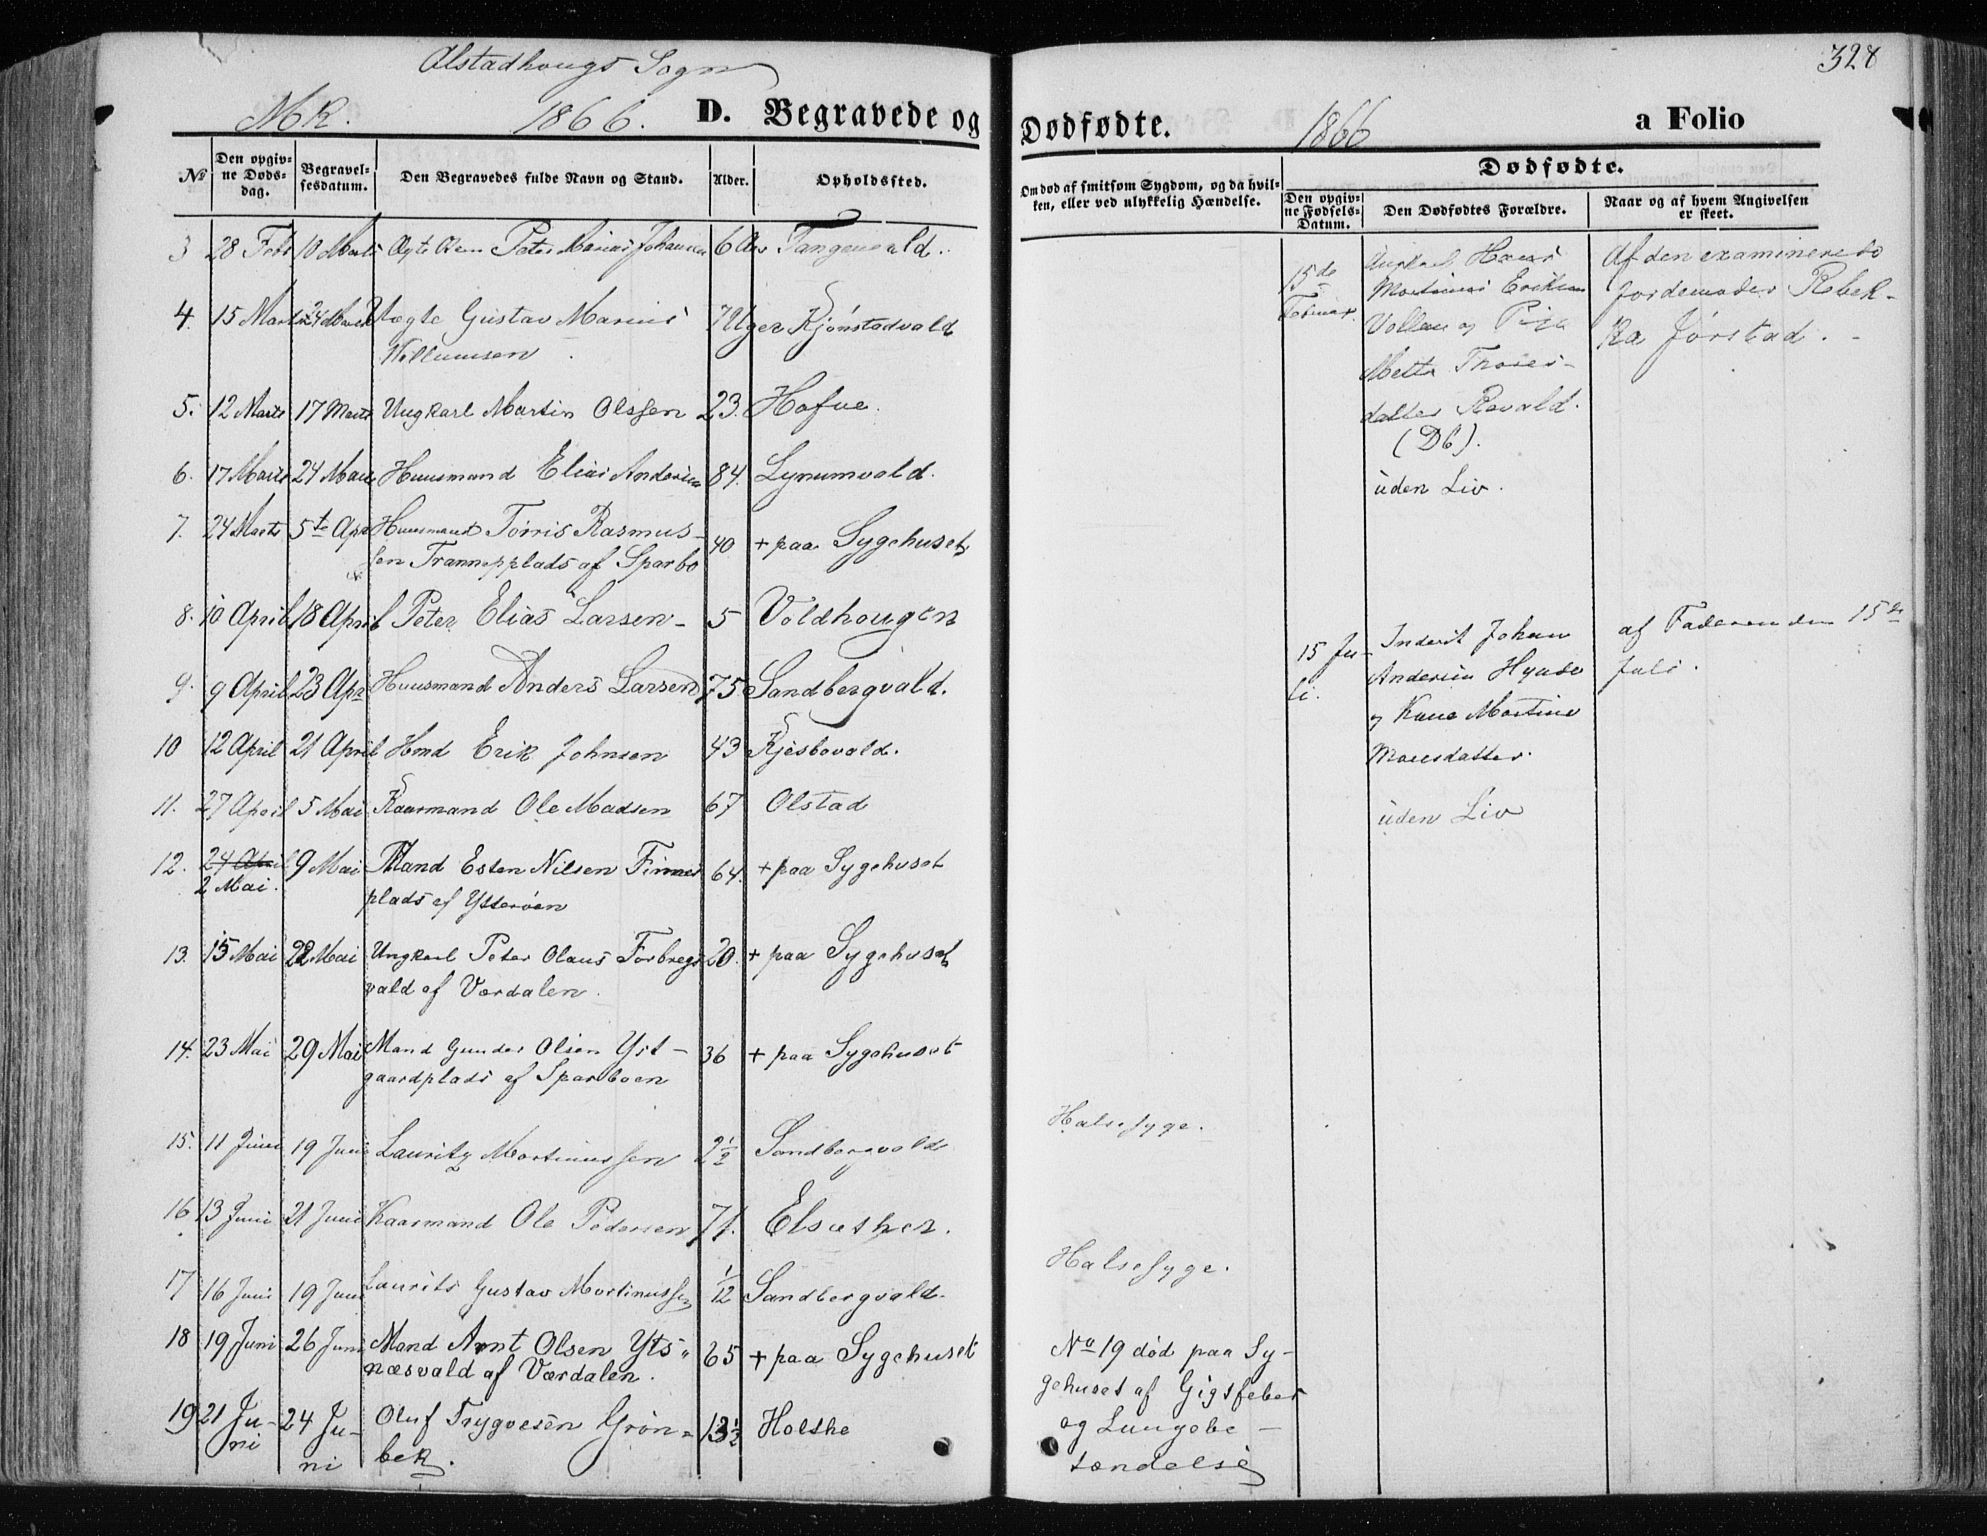 Alstadhougs Sogn
328
Mk. 1866. D. Begravede og Dødfødte. 1866 a Folio
No
Den opgiv-
ne Døds-
dag.
Begravel-
sesdatum.
Den Begravedes fulde Navn og Stand.
Alder.
Opholdssted.
Om død af smitsom Sygdom, og da hvil-
ken, eller ved ulykkelig Hændelse.
Dødfødte.
Den opgiv-
ne Fødsels-
Datum.
Den Dødfødtes Forældre.
Naar og af hvem Angivelsen
er skeet.
3 28 Febr 10 Marts Ægte Barn Peter Marius Johansen 6 Aar Tangenvald.
4. 15 Marts 24 Marts Uægte Gustav Marius 7 Uger Kjønstadvald
Willumsen
5. 12 Marts 17 Marts Ungkarl Martin Olssen 23. Hofve.
6. 17 Marts 24 Marts Huusmand Elias Andersen 84. Lynumvald.
7. 24 Marts 5te Apr Huusmand Tørris Rasmus-
sen Trannepplads af Sparbo 40 + paa Sygehuset
8. 10 April 18 April Peter Elias Larsen 5 Voldhougen
9. 9 April 23 Apr Huusmand Anders Larsen 75 Sandbergvald.
10 12 April 21 April Hmd Erik Johnsen 43 Rjesbovald.
11. 27 April 5 Mai Kaarmand Ole Madsen 67 Olstad
12. 24 April
2 Mai. 9 Mai Mand Esten Nilsen Finnes
plads af Ytterøen 64. + paa Sygehuset
13. 15 Mai 22 Mai Ungkarl Peter Olaus Forbregs
vald af Værdalen. 20. + paa Sygehuset
14. 23 Mai 29 Mai Mand Gunder Olsen Yst-
gaardplads af Sparboen 36 + paa Sygehuset
15. 11 Juni 19 Juni Lauritz Martinussen 2 1/2 Sandbergvald Halssyge.
16. 13 Juni 21 Juni Kaarmand Ole Pedersen 71. Elsether.
17 16 Juni 19 Juni Laurits Gustav Martinussen 1/12 Sandbergvald. Halssyge.
18 19 Juni 26 Juni Mand Arnt Olsen Yts-
næsvald af Værdalen. 65 + paa Sygehuset
19 21 Ju-
ni 24 Ju-
ni Oluf Trygvesen Grøn-
bek. 13 1/2 Holthe
No 19 død paa Sy-
gehuset af Gigtfeber
og Lungebe-
tændelse
15de
Februar.
Ungkarl Hans
Martinus Eriksen
Vollan og Pige
Metta Thores-
datter Revald.
(D6).
uden Liv.
Af den examinerede
Jordemoder Rebek-
ka Jørstad.
15 Ju-
li.
Inderst Johan
Andersen Hyabe
og Kone Martine
datter.
uden Liv
af Faderen den 15de
Juli.